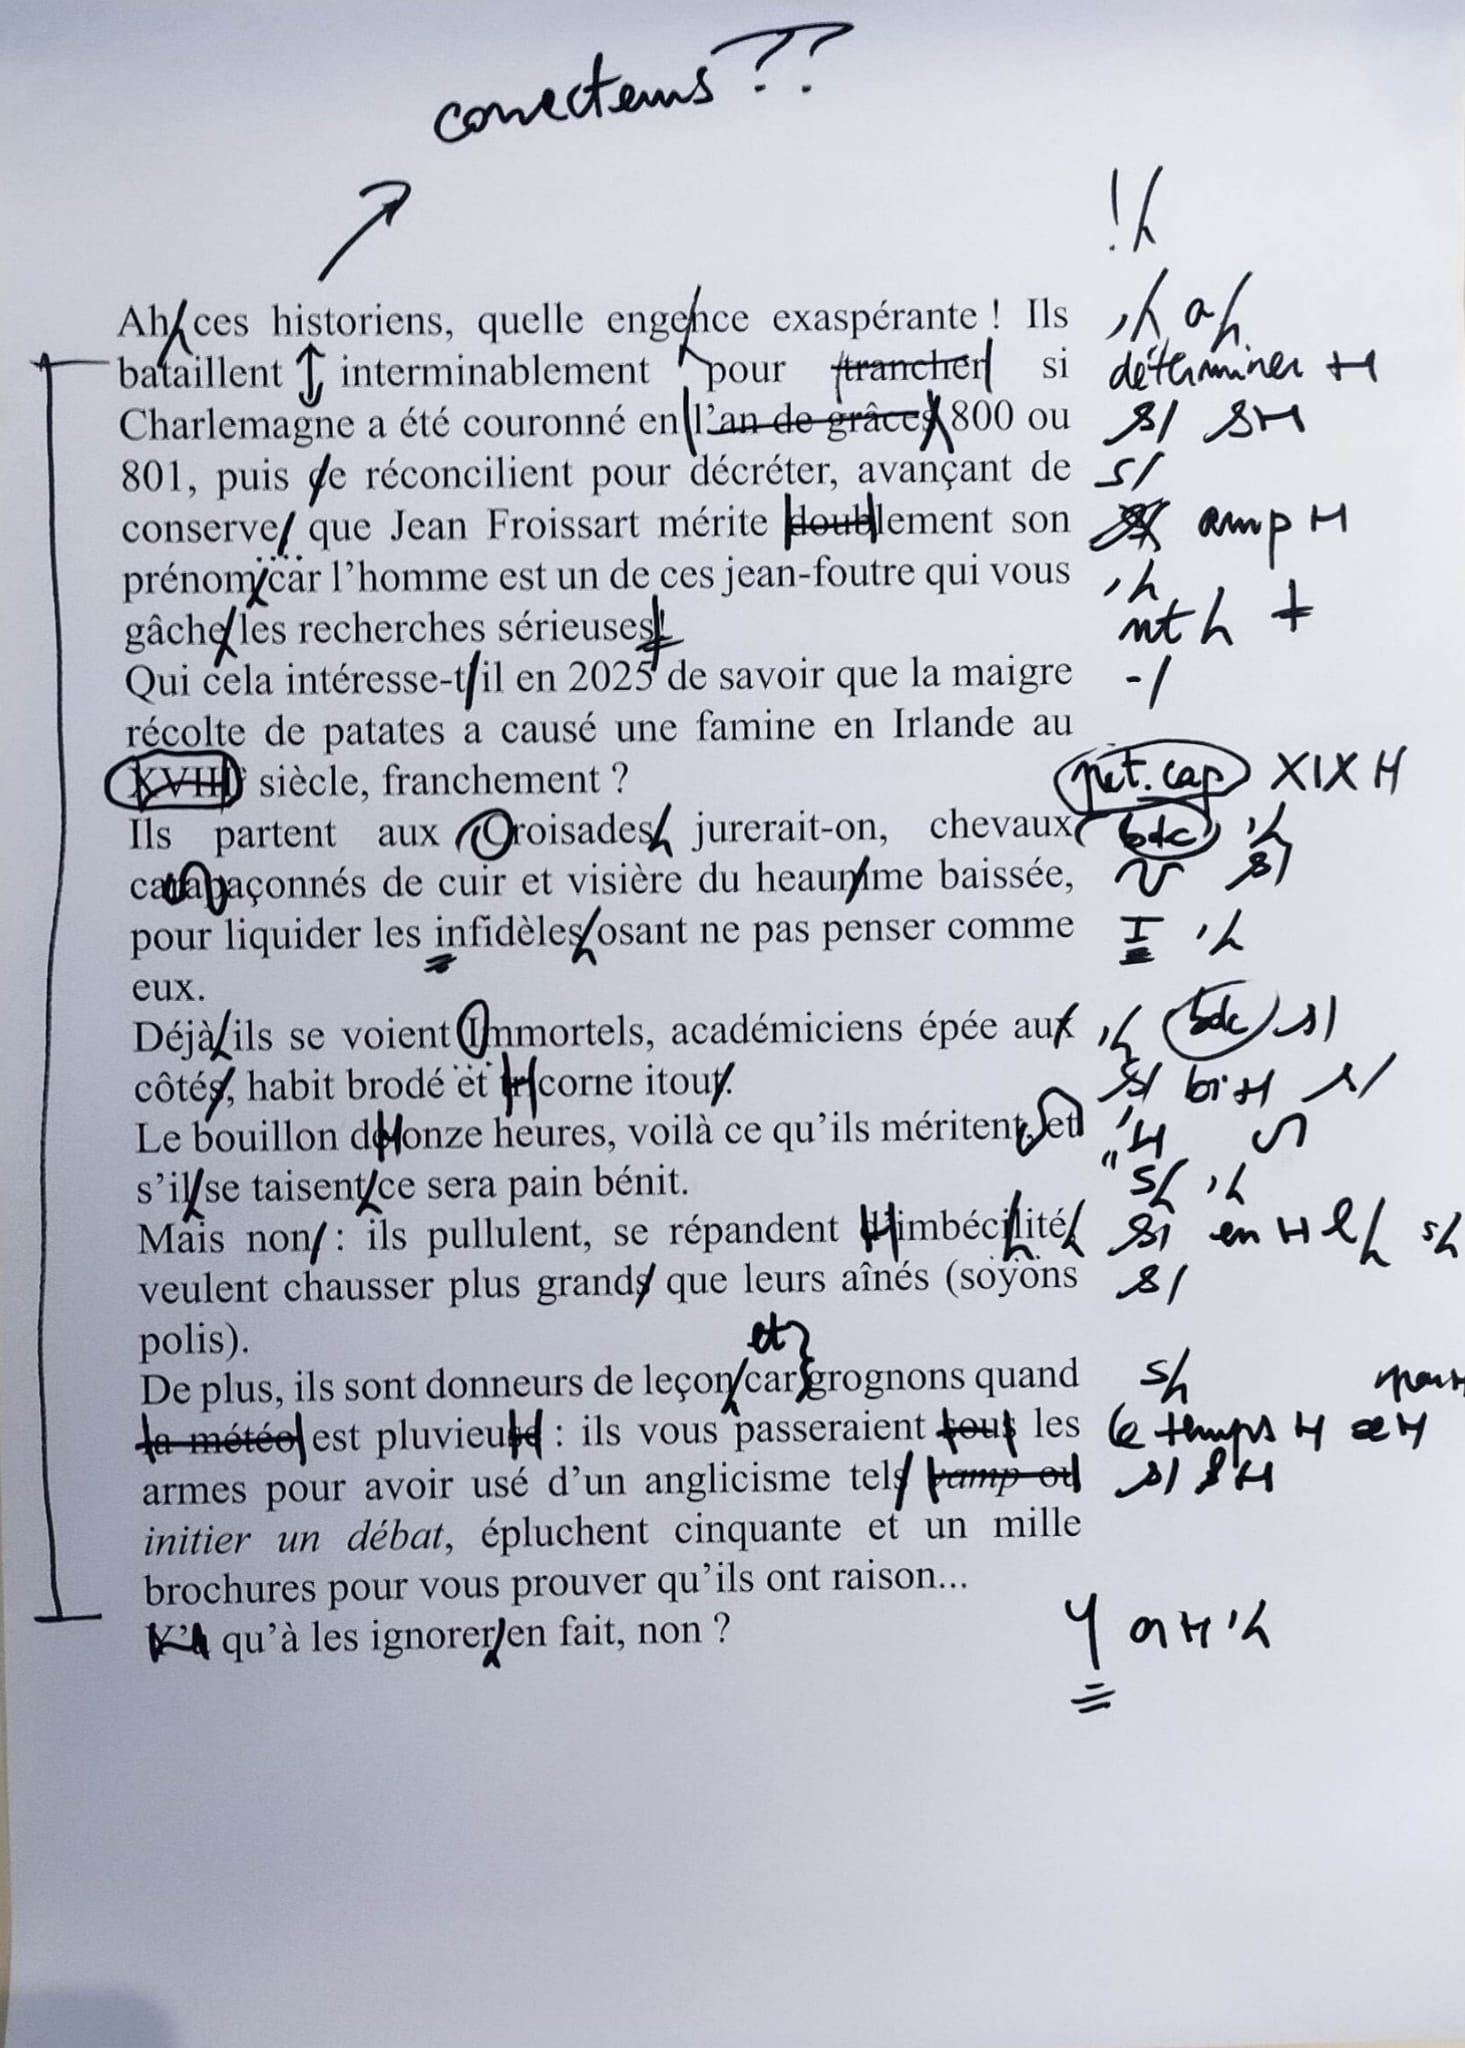 correcteurs ??
! h
Ah ces historiens, quelle engence exaspérante ! Ils , h a h
bataillent interminablement pour trancher si déterminer H
Charlemagne a été couronné en l’an de grâces 800 ou
801, puis ce réconcilient pour décréter, avançant de s/
conserve que Jean Froissart mérite doublement son amp H
prénom car l’homme est un de ces jean-foutre qui vous , h
gâche les recherches sérieuses! nt h
Qui cela intéresse-t il en 2025 de savoir que la maigre - /
récolte de patates a causé une famine en Irlande au
XVIIIe siècle, franchement ? pet. cap XIX H
Ils partent aux Croisades jurerait-on, chevaux bdc , h
paçonnés de cuir et visière du heaumme baissée,
pour liquider les infidèles osant ne pas penser comme I , h
eux.
Déjà ils se voient Immortels, académiciens épée aux , h bdc
côtés, habit brodé et tricorne itout. bi H
Le bouillon de onze heures, voilà ce qu’ils méritent, et ' H
s’il se taisent ce sera pain bénit. s h , h
Mais non : ils pullulent, se répandent d’imbécilité en H l h s h
veulent chausser plus grands que leurs aînés (soyons
polis).
et
De plus, ils sont donneurs de leçon car grognons quand s h
la météo est pluvieuse : ils vous passeraient tous les le temps H x H
armes pour avoir usé d’un anglicisme tels vamp ou
initier un débat, épluchent cinquante et un mille
brochures pour vous prouver qu’ils ont raison...
Y’a qu’à les ignorer en fait, non ? Y a H ' h